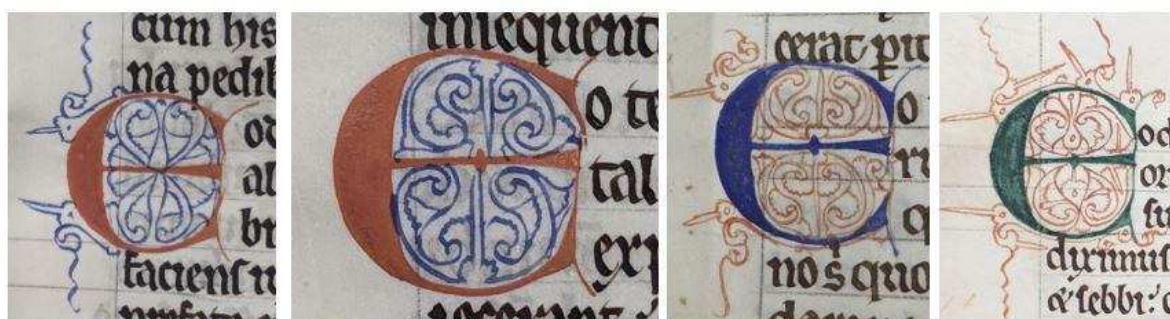 cum his
na pedib
E
od
al
br
faciens u
insequent
E
o te
tal
exp
cerat pit
E
o
ru
q
nos quo
E
od
or
su
diximus
& sebbi: